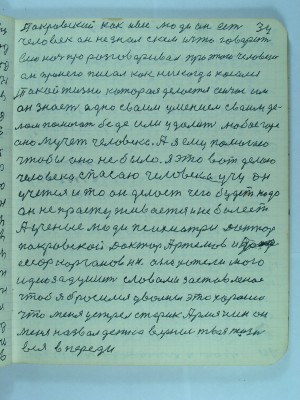 Покровский как все люди он ест 34
человек он не знал с кем и что говорить
про разговаривал при том человеком
он писал как никогда
такой жизни которая делается сейчас им
он знает одно своим умением своим де-
лам помогать беде или удалить любое горе
оно мучет человека. А я ему помогаю
чтобы оно не было. Я это вот делаю
человека, спасаю человека учу он
учется и то он делает чего будет надо
он не простуживается и не болеет
А ученые люди психиатры Доктор
покровской Доктор Артемов и
ссор они хотели мою
идею задушить словами заставление
чтоб я бросил я думаю это хорошо
что меня встрел старик Армянин он
меня назвал детка верни твоя жизнь
вся впереди